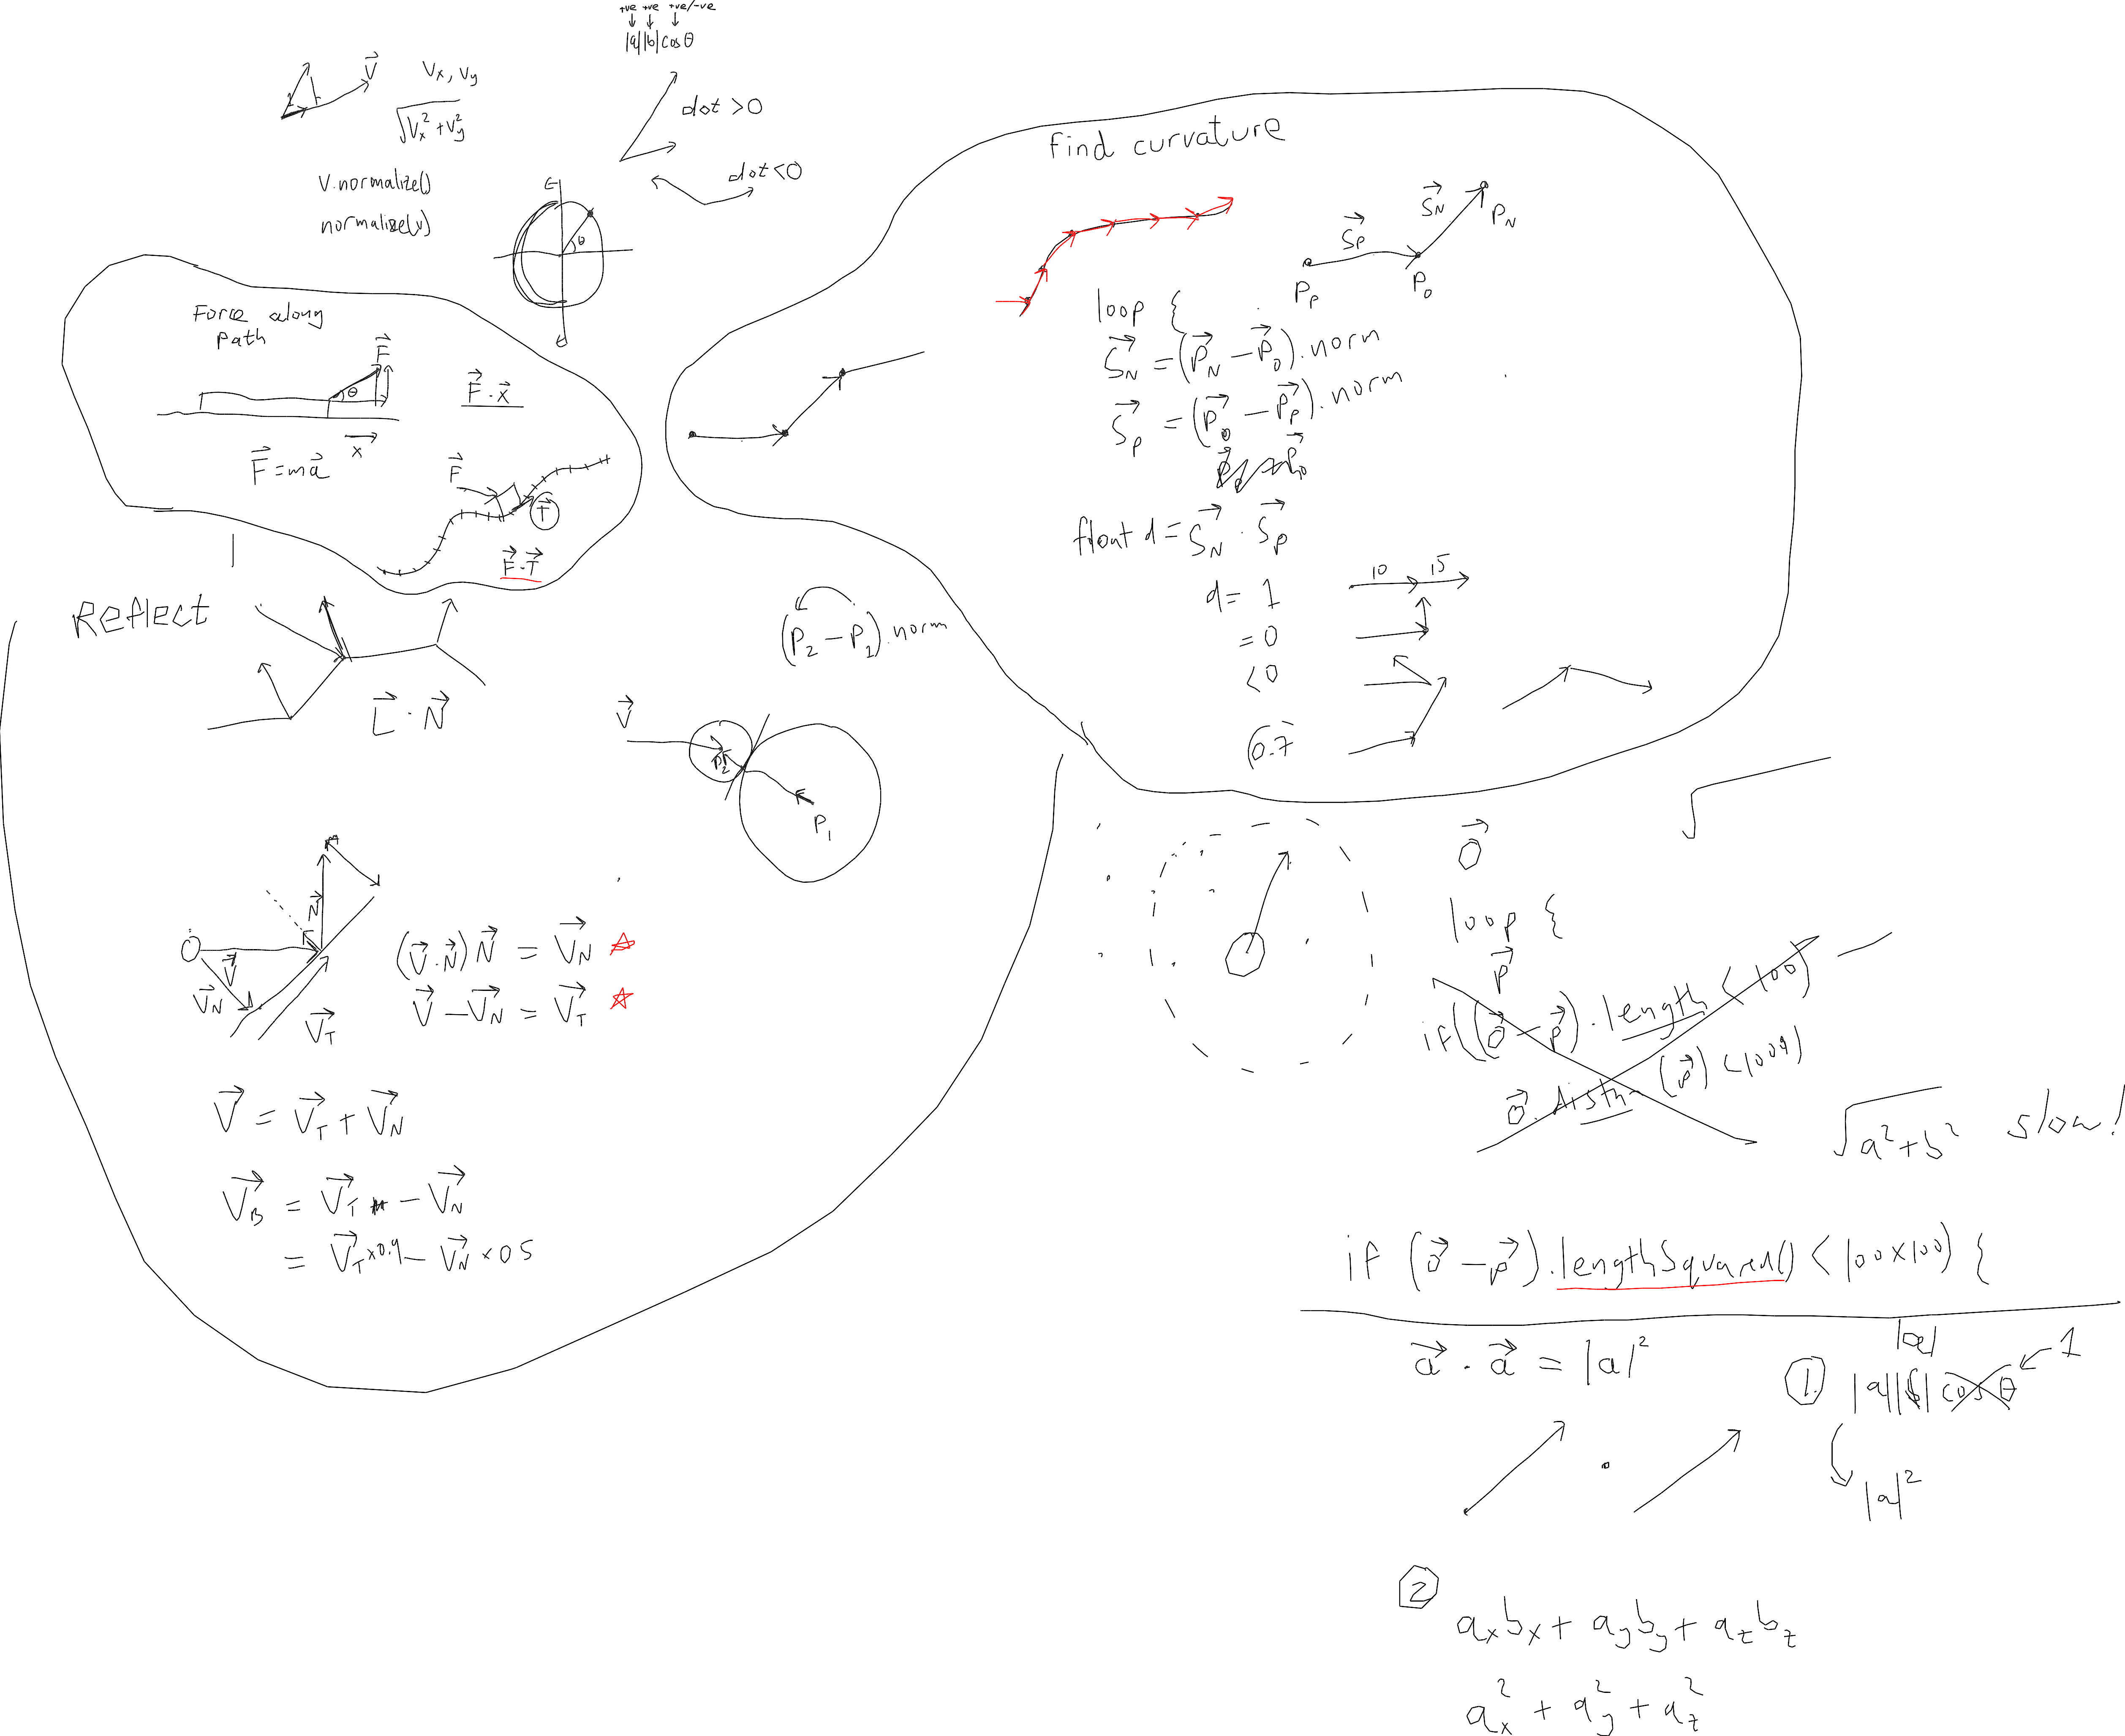 +ve +ve +ve/-ve
|a||b|cosθ
V⃗
Vx, Vy
√(Vx² + Vy²)
dot >0
dot<0
V.normalize()
normalize(v)
θ
Force along
path
F⃗
θ
F⃗ · x⃗
x⃗
F⃗ = ma⃗
F⃗
T⃗
F⃗ · T⃗
find curvature
S⃗P
S⃗N
PN
PP
P0
loop {
S⃗N = (P⃗N − P⃗0).norm
S⃗P = (P⃗0 − P⃗P).norm
float d = S⃗N · S⃗P
d = 1
10 15
= 0
<0
0.7
Reflect
L⃗ · N⃗
(P2 − P1).norm
V⃗
P2
P1
N⃗
V⃗
V⃗N
V⃗T
(V⃗·N⃗)N⃗ = V⃗N
V⃗ − V⃗N = V⃗T
V⃗ = V⃗T + V⃗N
V⃗B = V⃗T − V⃗N
= V⃗T ×0.9 − V⃗N × 0.5
O⃗
loop {
P⃗
if((O⃗ − P⃗).length < 100)
O⃗. (P⃗) <100)
√(a² + b²) slow!
if (O⃗ − P⃗).lengthSquared() < 100x100) {
a⃗ · a⃗ = |a|²
|a|
1
① |a||b| cosθ
|a|²
②
axbx + ayby + azbz
ax² + ay² + az²